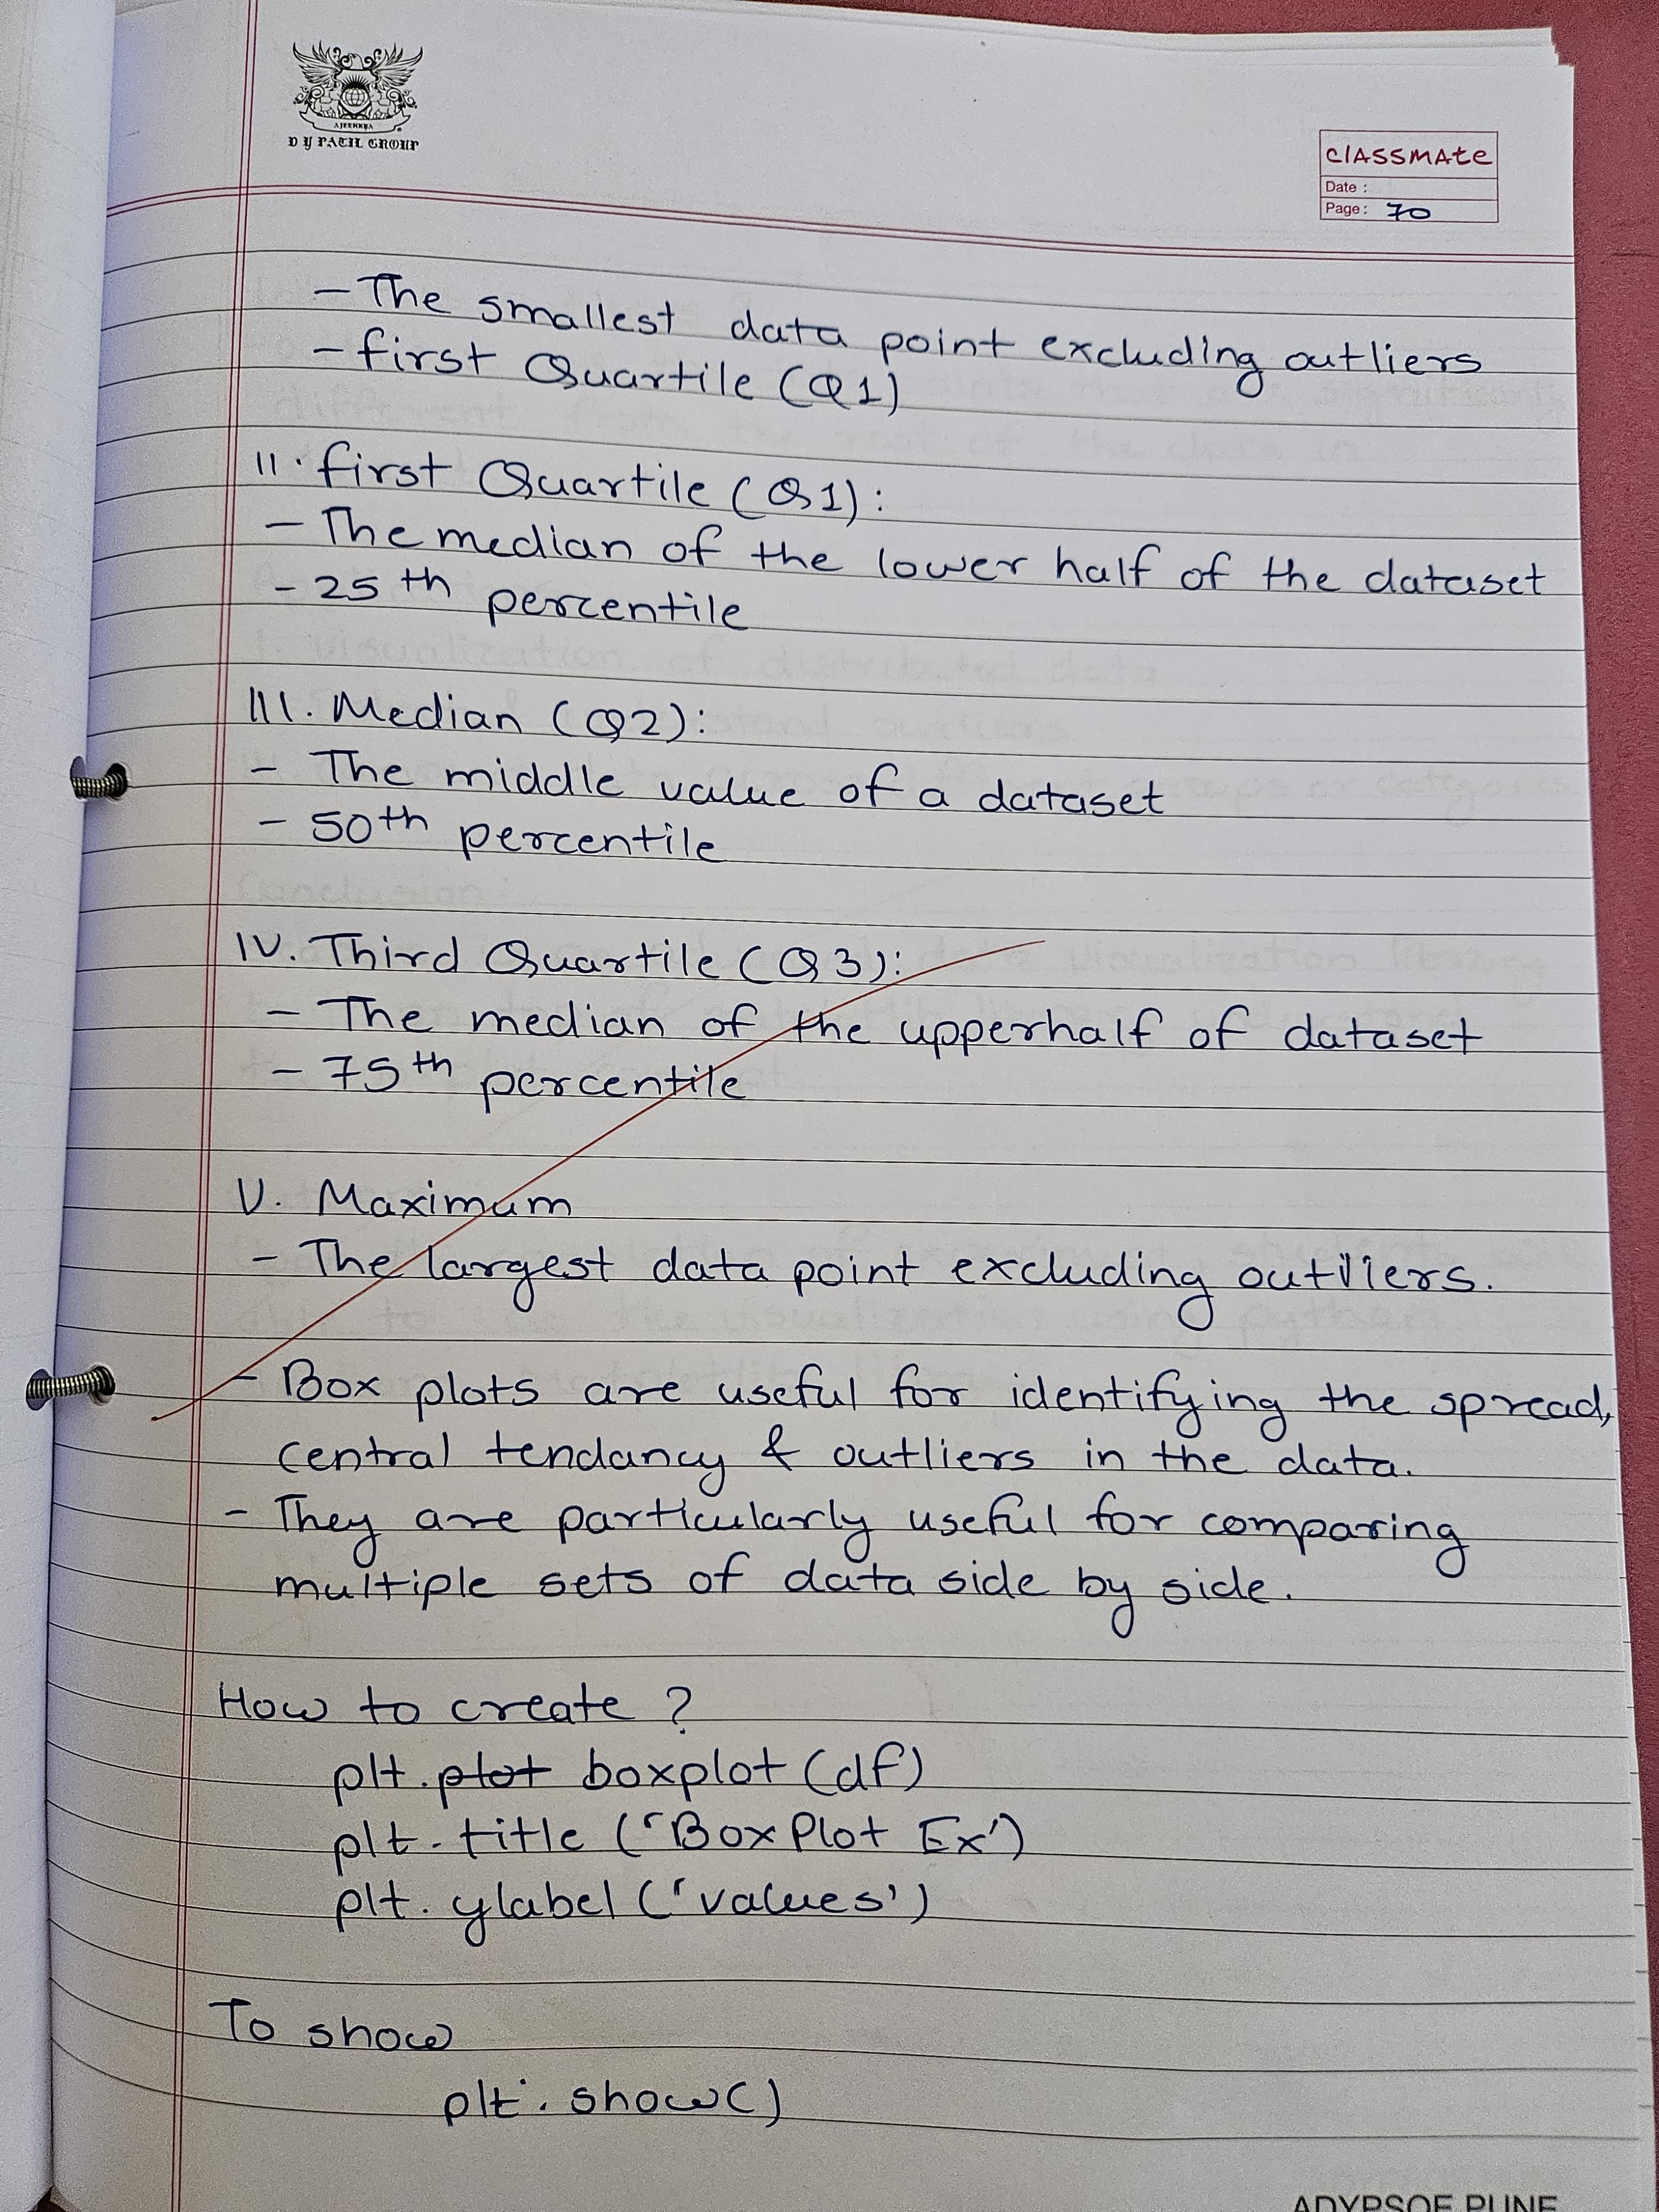 AJEENKYA
D Y PATIL GROUP
classmate
Date :
Page: 70
- The smallest data point excluding outliers
- first Quartile (Q1)
II. first Quartile (Q1):
- The median of the lower half of the dataset
- 25th percentile
III. Median (Q2):
- The middle value of a dataset
- 50th percentile
IV. Third Quartile (Q3):
- The median of the upperhalf of dataset
- 75th percentile
V. Maximum
- The largest data point excluding outliers.
- Box plots are useful for identifying the spread,
central tendancy & outliers in the data.
- They are particularly useful for comparing
multiple sets of data side by side.
How to create ?
plt. plot boxplot (df)
plt. title ('Box Plot Ex')
plt. ylabel ('values')
To show
plt. show()
ADYPSOE PUNE